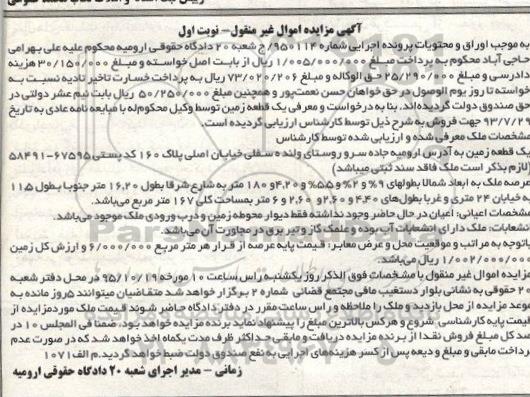 آگهی مزایده اموال غیر منقول – نوبت اول
به موجب اوراق و محتویات پرونده اجرایی شماره ۹۵۰۱۱۴/ج شعبه ۲۰ دادگاه حقوقی ارومیه محکوم علیه علی بهرامی
حاجی آباد محکوم به پرداخت مبلغ ۱/۰۰۵/۰۰۰/۰۰۰ ریال از بابت اصل خواسته و مبلغ ۳۰/۱۵۰/۰۰۰ هزینه
دادرسی و مبلغ ۲۵/۲۹۰/۰۰۰ حق الوکاله و مبلغ ۷۳/۰۲۰/۲۰۶ ریال به پرداخت خسارت تاخیر تادیه نسبت به
خواسته تا روز یوم الوصول در حق خواهان حسن نعمت‌پور و همچنین مبلغ ۵۰/۲۵۰/۰۰۰ ریال بابت نیم عشر دولتی در
حق صندوق دولت گردیده‌اند. بنا به درخواست و معرفی یک قطعه زمین توسط وکیل محکوم‌له با مبایعه نامه عادی به تاریخ
۹۳/۷/۲۹ جهت فروش به شرح ذیل توسط کارشناس ارزیابی گردیده است.
مشخصات ملک معرفی شده و ارزیابی شده توسط کارشناس
یک قطعه زمین به آدرس ارومیه جاده سرو روستای ولنده سفلی خیابان اصلی پلاک ۱۶۰ کد پستی ۶۷۵۹۵-۵۸۴۹۱
(لازم بذکر است ملک فاقد سند ثبتی میباشد)
عرصه ملک به ابعاد شمالا بطولهای ۹% و ۲% و ۵۵% و ۴.۲۰ و ۱۸۰ متر به شارع شرقا بطول ۱۶.۲۰ متر جنوبا بطول ۱۱۵
به خیابان ۲۴ متری و غربا بطول‌های ۴.۴۰ و ۲.۶۰ و ۲.۶۰ و ۶ متر بمساحت کلی ۱۶۷ متر مربع می‌باشد.
مشخصات اعیانی: اعیان در حال حاضر وجود نداشته فقط دیوار محوطه زمین و درب ورودی ملک موجود می‌باشد.
انشعابات: ملک دارای انشعابات آب بوده و علمک گاز و تیر برق در مجاورت آن می‌باشد.
باتوجه به مراتب و موقعیت محل و عرض معابر: قیمت پایه عرصه از قرار هر متر مربع ۶/۰۰۰/۰۰۰ و ارزش کل زمین
۱/۰۰۲/۰۰۰/۰۰۰ ریال می‌باشد.
مزایده اموال غیر منقول با مشخصات فوق الذکر روز یکشنبه راس ساعت ۱۰ مورخه ۹۵/۱۰/۱۹ در محل دفتر شعبه
۲۰ حقوقی به نشانی بلوار دستغیب مافی مجتمع قضائی شماره ۲ برگزار خواهد شد متقاضیان میتوانند ۵ روز مانده به
موعد مزایده از محل بازدید و ملک را ملاحظه و راس ساعت مقرر در دفتر دادگاه حاضر شوند قیمت ملک مورد مزایده از
قیمت پایه کارشناسی شروع و هرکس بالاترین مبلغ را پیشنهاد نماید برنده مزایده خواهد بود. ضمنا فی المجلس ۱۰ در
صد کل مبلغ فروش نقدا از برنده مزایده دریافت و مابقی حداکثر ظرف مدت یکماه اخذ خواهد شد که در صورت عدم
پرداخت مابقی و مبلغ و دیعه پس از کسر هزینه‌های اجرایی به نفع صندوق دولت ضبط خواهد گردید. م الف ۱۰۷۱
زمانی – مدیر اجرای شعبه ۲۰ دادگاه حقوقی ارومیه